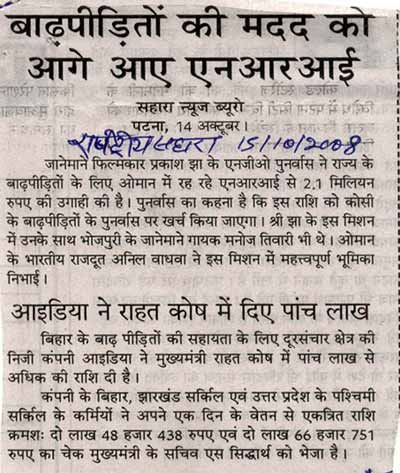 बाढ़पीड़ितों की मदद को
आगे आए एनआरआई
सहारा न्यूज ब्यूरो
पटना, 14 अक्टूबर।
राष्ट्रीय सहारा 15/10/2008
जानेमाने फिल्मकार प्रकाश झा के एनजीओ पुनर्वास ने राज्य के
बाढ़पीड़ितों के लिए ओमान में रह रहे एनआरआई से 2.1 मिलियन
रुपए की उगाही की है। पुनर्वास का कहना है कि इस राशि को कोसी
के बाढ़पीड़ितों के पुनर्वास पर खर्च किया जाएगा। श्री झा के इस मिशन
में उनके साथ भोजपुरी के जानेमाने गायक मनोज तिवारी भी थे। ओमान
के भारतीय राजदूत अनिल वाधवा ने इस मिशन में महत्त्वपूर्ण भूमिका
निभाई।
आइडिया ने राहत कोष में दिए पांच लाख
बिहार के बाढ़ पीड़ितों की सहायता के लिए दूरसंचार क्षेत्र की
निजी कंपनी आइडिया ने मुख्यमंत्री राहत कोष में पांच लाख से
अधिक की राशि दी है।
कंपनी के बिहार, झारखंड सर्किल एवं उत्तर प्रदेश के पश्चिमी
सर्किल के कर्मियों ने अपने एक दिन के वेतन से एकत्रित राशि
क्रमशः दो लाख 48 हजार 438 रुपए एवं दो लाख 66 हजार 751
रुपए का चेक मुख्यमंत्री के सचिव एस सिद्धार्थ को भेजा है।